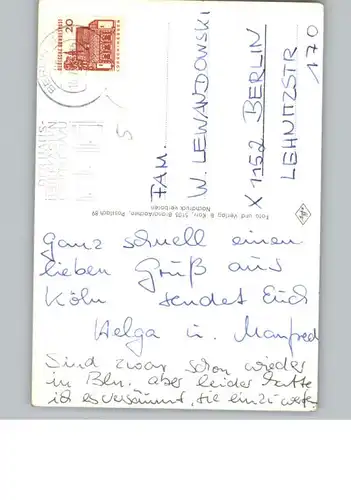 Ganz schnell einen
lieben Gruß aus
Köln sendet Euch
Helga u. Manfred
Sind zwar schon wieder
in Bln. aber leider hatte
ich es versäumt, sie einzuwerfen
FAM.
W. LEWANDOWSKI
X 1152 BERLIN
LEHNITZSTR
170
Foto und Verlag B. Korr, 5105 Brand/Aachen, Postfach 89
Nachdruck verboten
DEUTSCHE BUNDESPOST
20
BERLIN
5